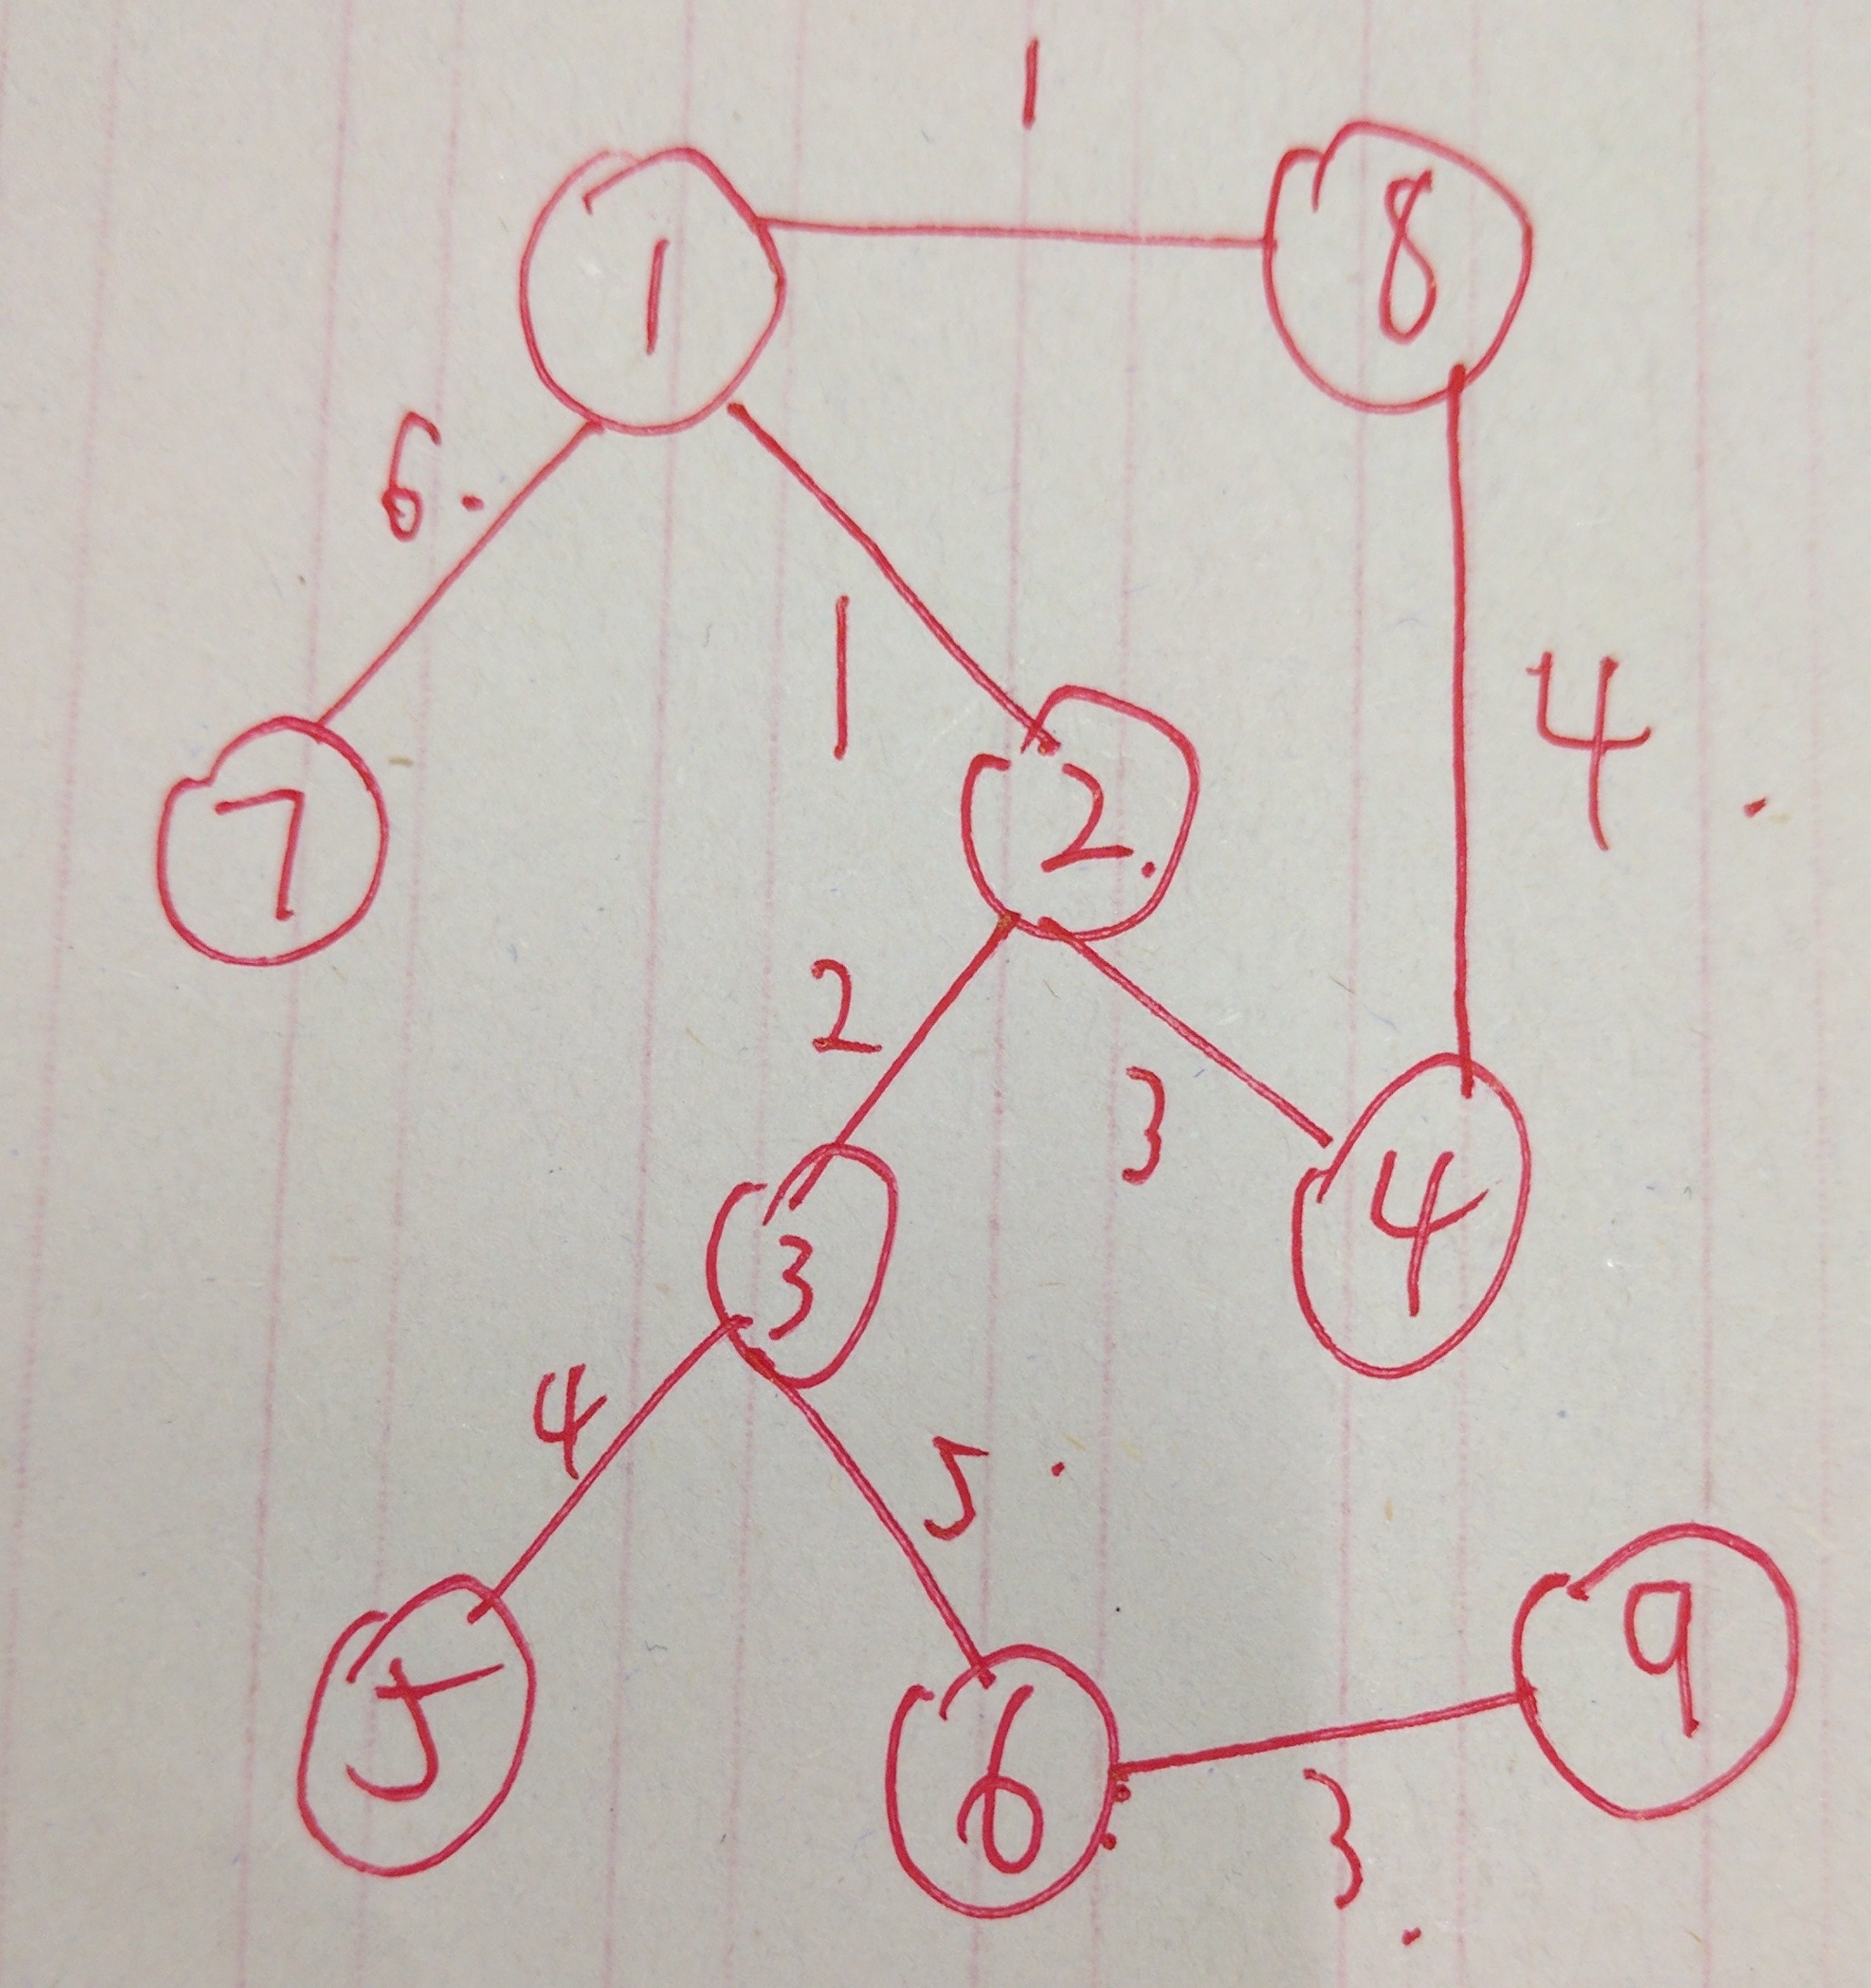 1
1
8
6.
1
4
7
2.
2
3
3
4
4
5.
5
6
9
3.